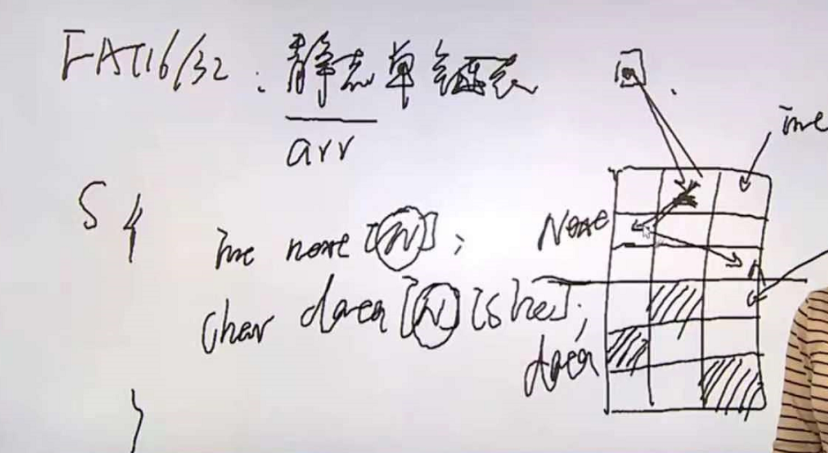 FAT16/32：静态单链表
arr
S {
int next [N];
char data [N][size];
}
int
Next
data